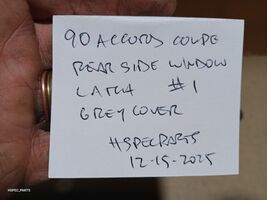 90 ACCORD COUPE
REAR SIDE WINDOW
LATCH #1
GREY COVER
HSPECPARTS
12-15-2025
HSPEC_PARTS